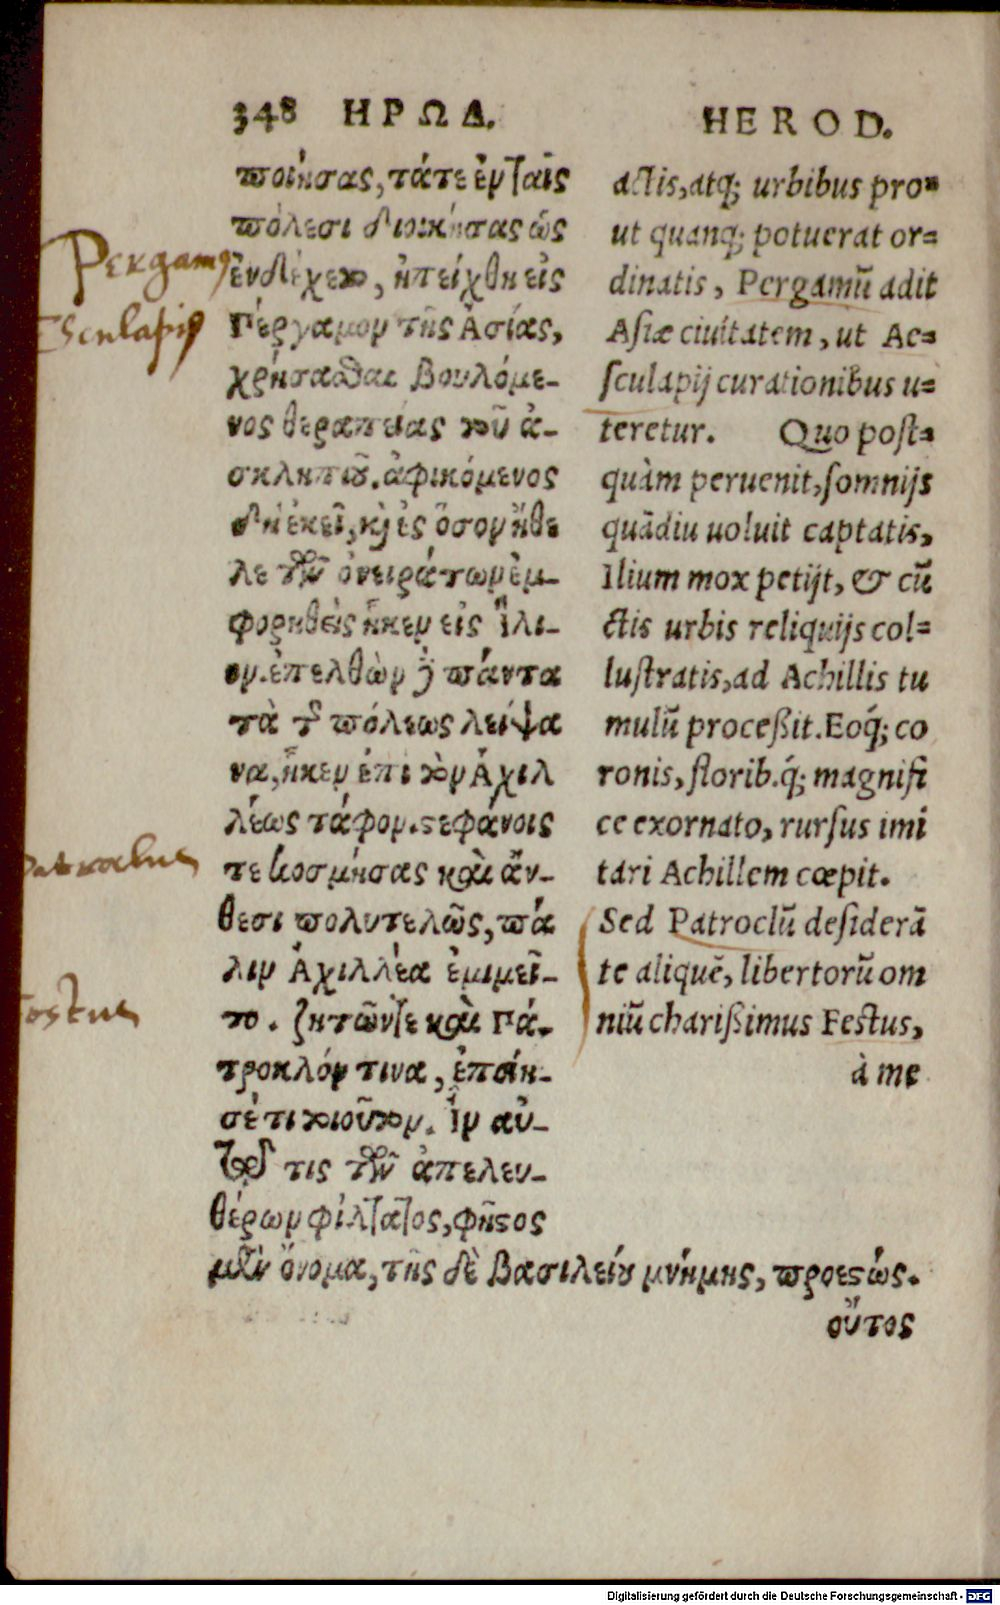 348 ΗΡΩΔ.
ποιήσας, τάτε ἐν ταῖς
πόλεσι διοικήσας ὡς
ἐνδέχετο, ἠπείχθη εἰς
Πέργαμον τῆς Ἀσίας,
χρήσασθαι βουλόμε-
νος θεραπείας τοῦ ἀ-
σκληπιοῦ. ἀφικόμενος
δὴ ἐκεῖ, κὶ ἐς ὅσον ἤθε
λε τῶν ὀνειράτων ἐμ-
φορηθεὶς ἧκεν εἰς Ἴλι-
ον. ἐπελθὼν ὃ πάντα
τὰ τῆς πόλεως λείψα
να, ἧκεν ἐπὶ τὸν Ἀχιλ
λέως τάφον. στεφάνοις
τε κοσμήσας καὶ ἄν-
θεσι πολυτελῶς, πά
λιν Ἀχιλλέα ἐμιμεῖ-
το. ζητῶν τε καὶ Πά-
τροκλόν τινα, ἐποίη-
σέ τι τοιοῦτον. Ἦν αὐ-
τῷ τις τῶν ἀπελευ-
θέρων φίλτατος, φῆστος
μὲν ὄνομα, τῆς δὲ βασιλείου μνήμης, προεστώς.
οὗτος
HEROD.
actis, atq; urbibus pro=
ut quanq; potuerat or=
dinatis, Pergamū adit
Asiæ ciuitatem, ut Ae=
sculapij curationibus u=
teretur. Quo post=
quàm peruenit, somnijs
quādiu uoluit captatis,
Ilium mox petijt, & cū
ctis urbis reliquijs col=
lustratis, ad Achillis tu
mulū proceßit. Eoq́; co
ronis, florib.q́; magnifi
ce exornato, rursus imi
tari Achillem cœpit.
Sed Patroclū desiderā
te aliquē, libertorū om
niū charißimus Festus,
à me
Pergamus
Esculapius
Patroclus
Festus
Digitalisierung gefördert durch die Deutsche Forschungsgemeinschaft - DFG